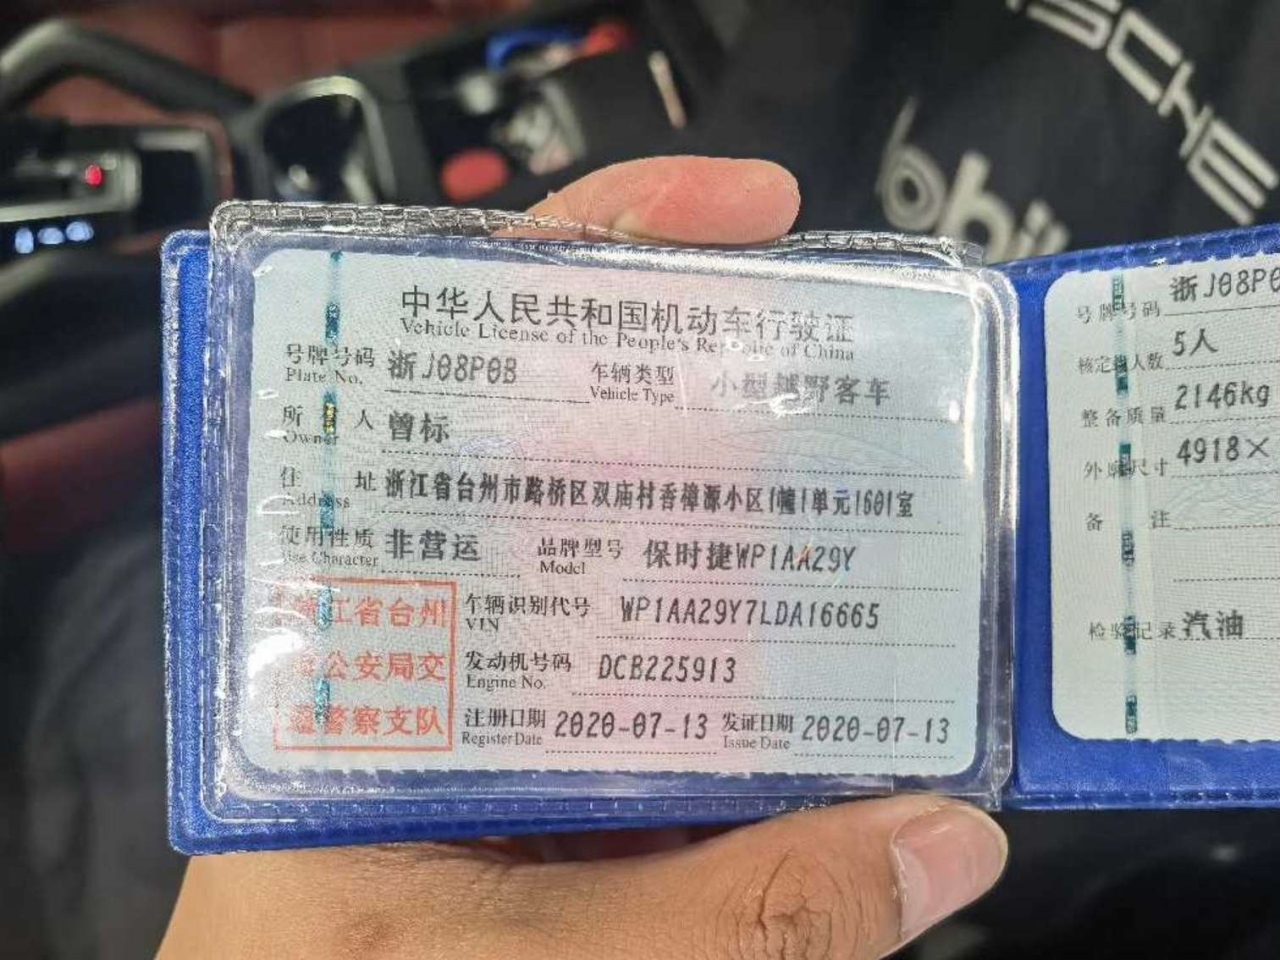 中华人民共和国机动车行驶证
Vehicle License of the People's Republic of China
号牌号码 浙J08P0B 车辆类型 小型越野客车
Plate No. Vehicle Type
所有人 曾标
Owner
住址 浙江省台州市路桥区双庙村香樟源小区1幢1单元1601室
Address
使用性质 非营运 品牌型号 保时捷WP1AA29Y
Use Character Model
浙江省台州
市公安局交
通警察支队
车辆识别代号 WP1AA29Y7LDA16665
VIN
发动机号码 DCB225913
Engine No.
注册日期 2020-07-13 发证日期 2020-07-13
Register Date Issue Date
号牌号码 浙J08P0
核定载人数 5人
整备质量 2146kg
外廓尺寸 4918×
备注
检验记录 汽油
SCHE